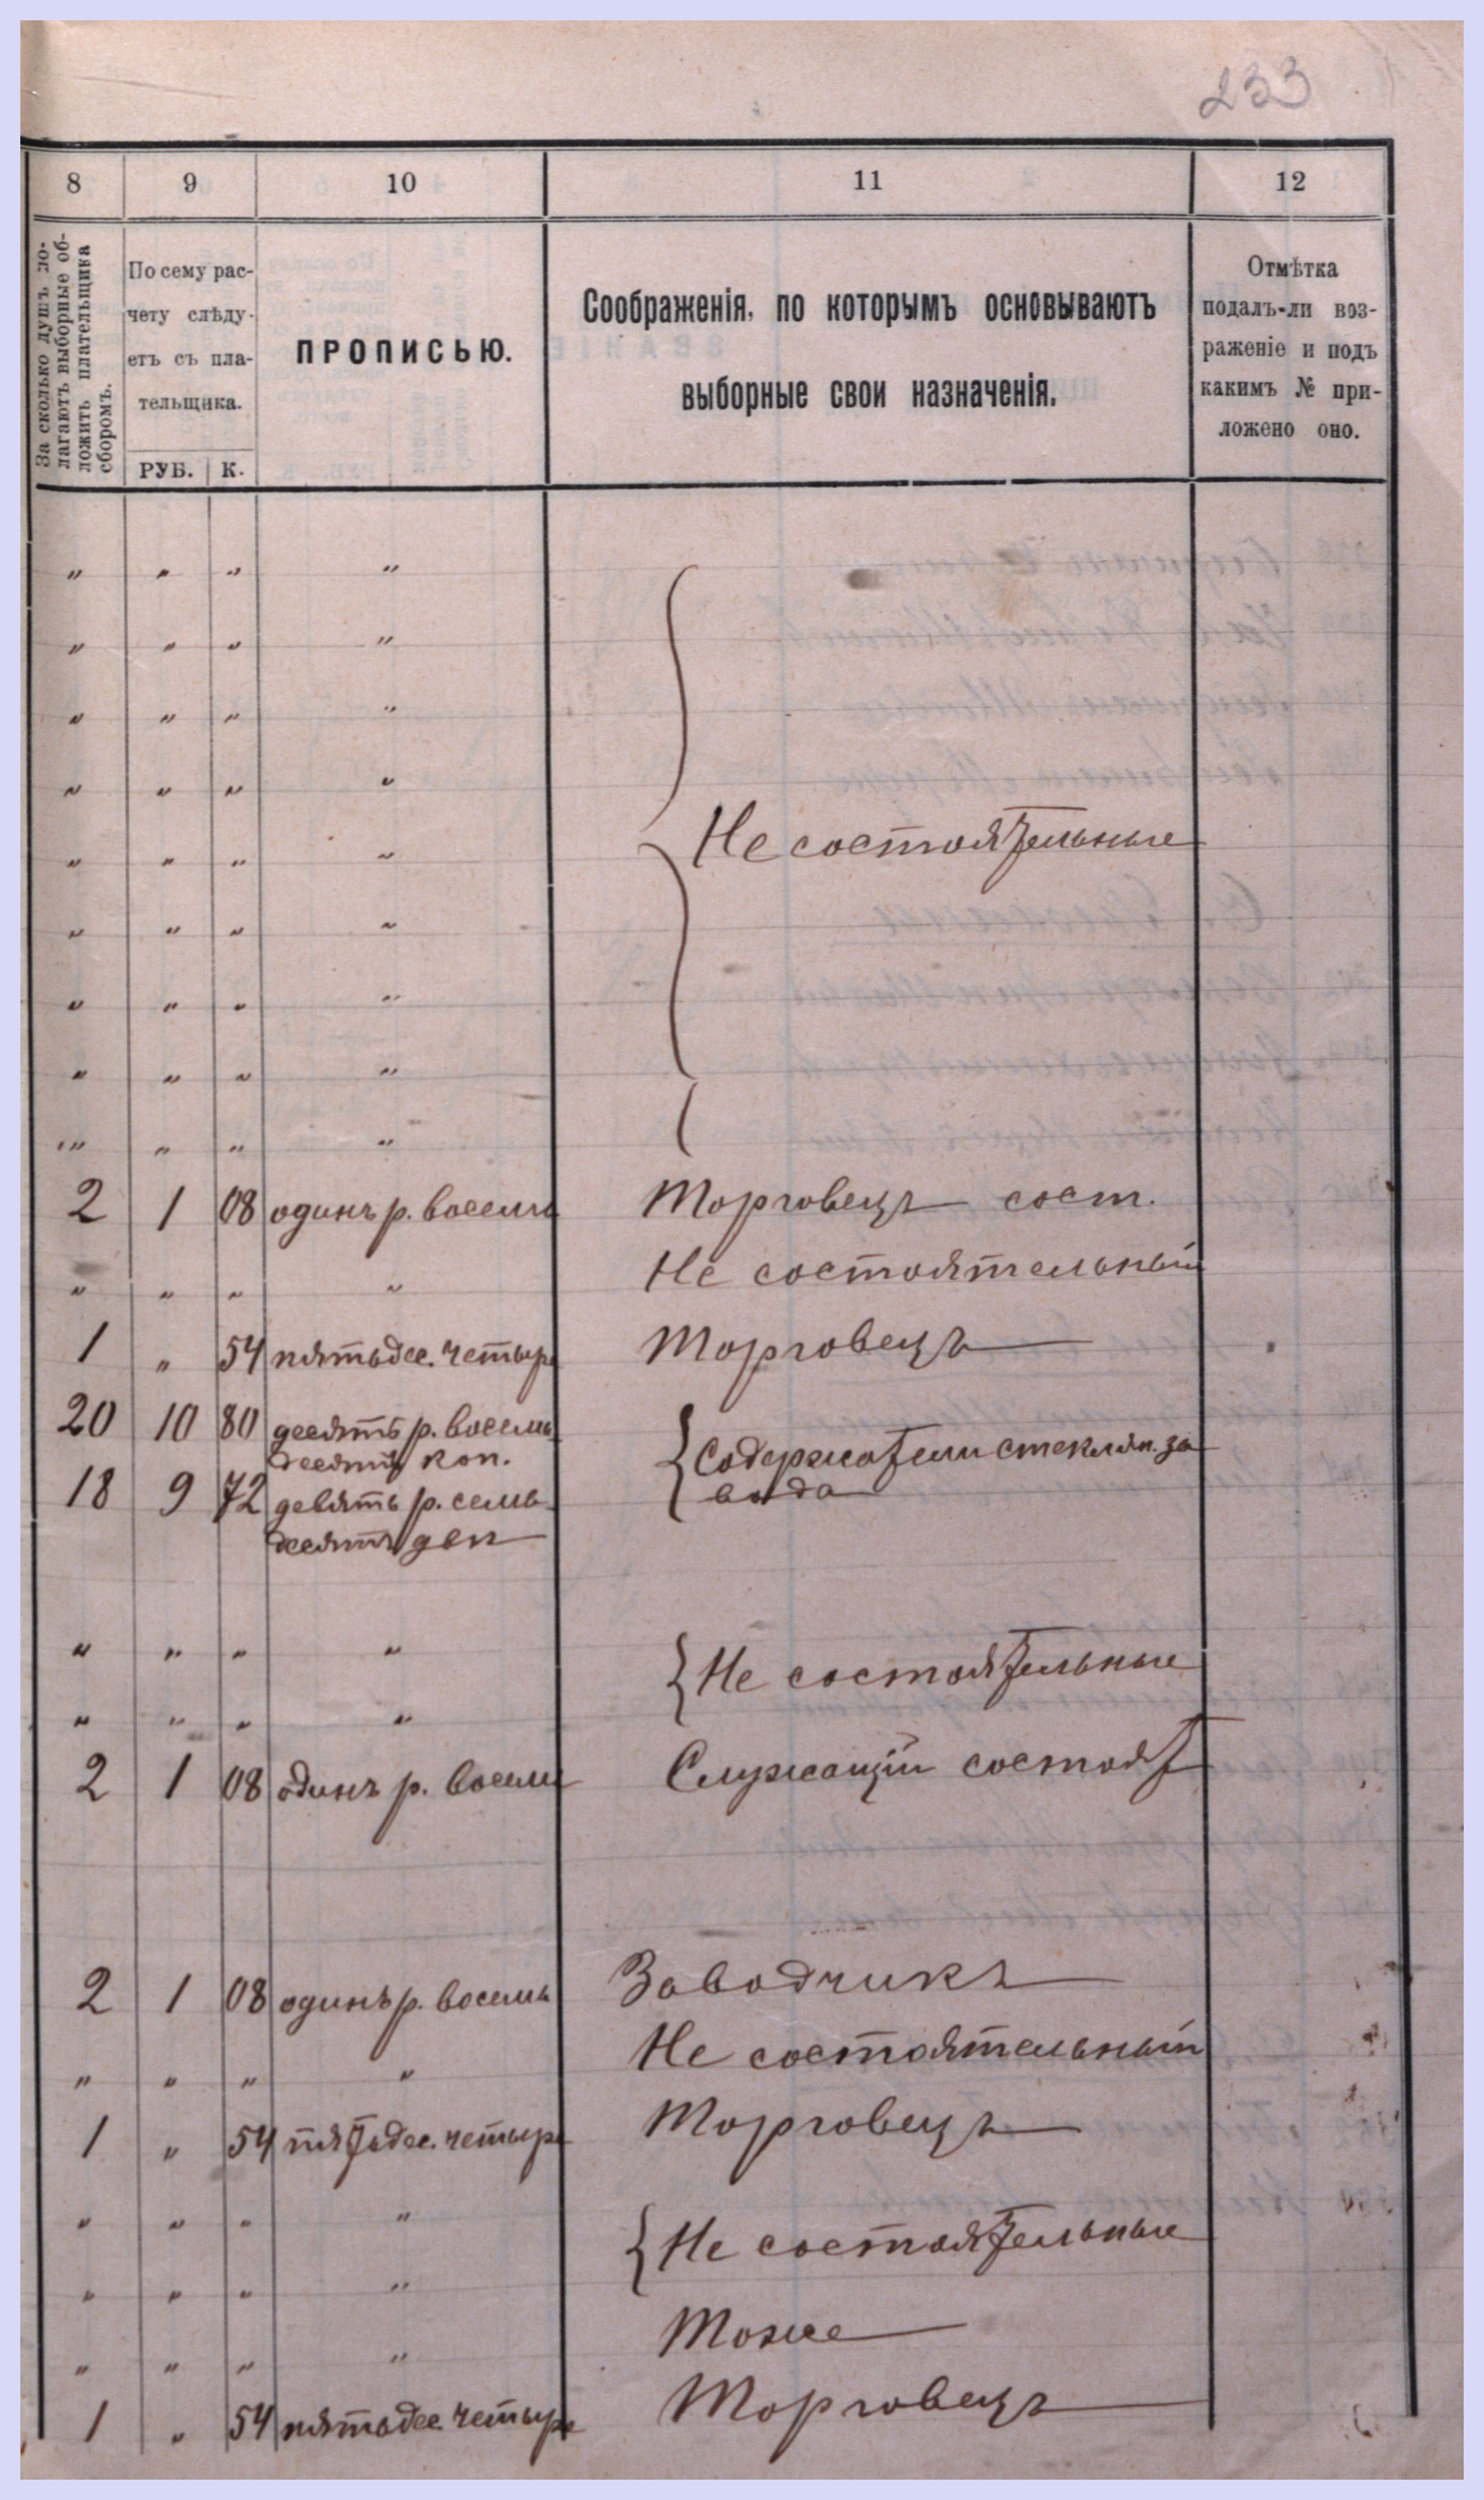 233
8 9 10 11 12
За сколько душъ по-
лагаютъ выборные об-
ложить плательщика
сборомъ.
По сему рас-
чету слѣду-
етъ съ пла-
тельщика.
РУБ. К.
ПРОПИСЬЮ.
Соображенія, по которымъ основываютъ
выборные свои назначенія.
Отмѣтка
подалъ-ли воз-
раженіе и подъ
какимъ № при-
ложено оно.
" " " "
" " " "
" " " "
" " " "
" " " " Не состоятельные
" " " "
" " " "
" " " "
" " " "
2 1 08 одинъ р. восемь Торговецъ сост.
" " " " Не состоятельный
1 " 54 пятьдес. четыре Торговецъ
20 10 80 десять р. восемь-
десятъ коп.
Содержатели стеклян. за
вода
18 9 72 девять р. семь-
десятъ две
" " " " Не состоятельные
" " " "
2 1 08 одинъ р. восемь Служащій состоят
2 1 08 одинъ р. восемь Заводчикъ
" " " " Не состоятельный
1 " 54 пятьдес. четыре Торговецъ
" " " " Не состоятельные
" " " "
" " " " Тоже
1 " 54 пятьдес. четыре Торговецъ